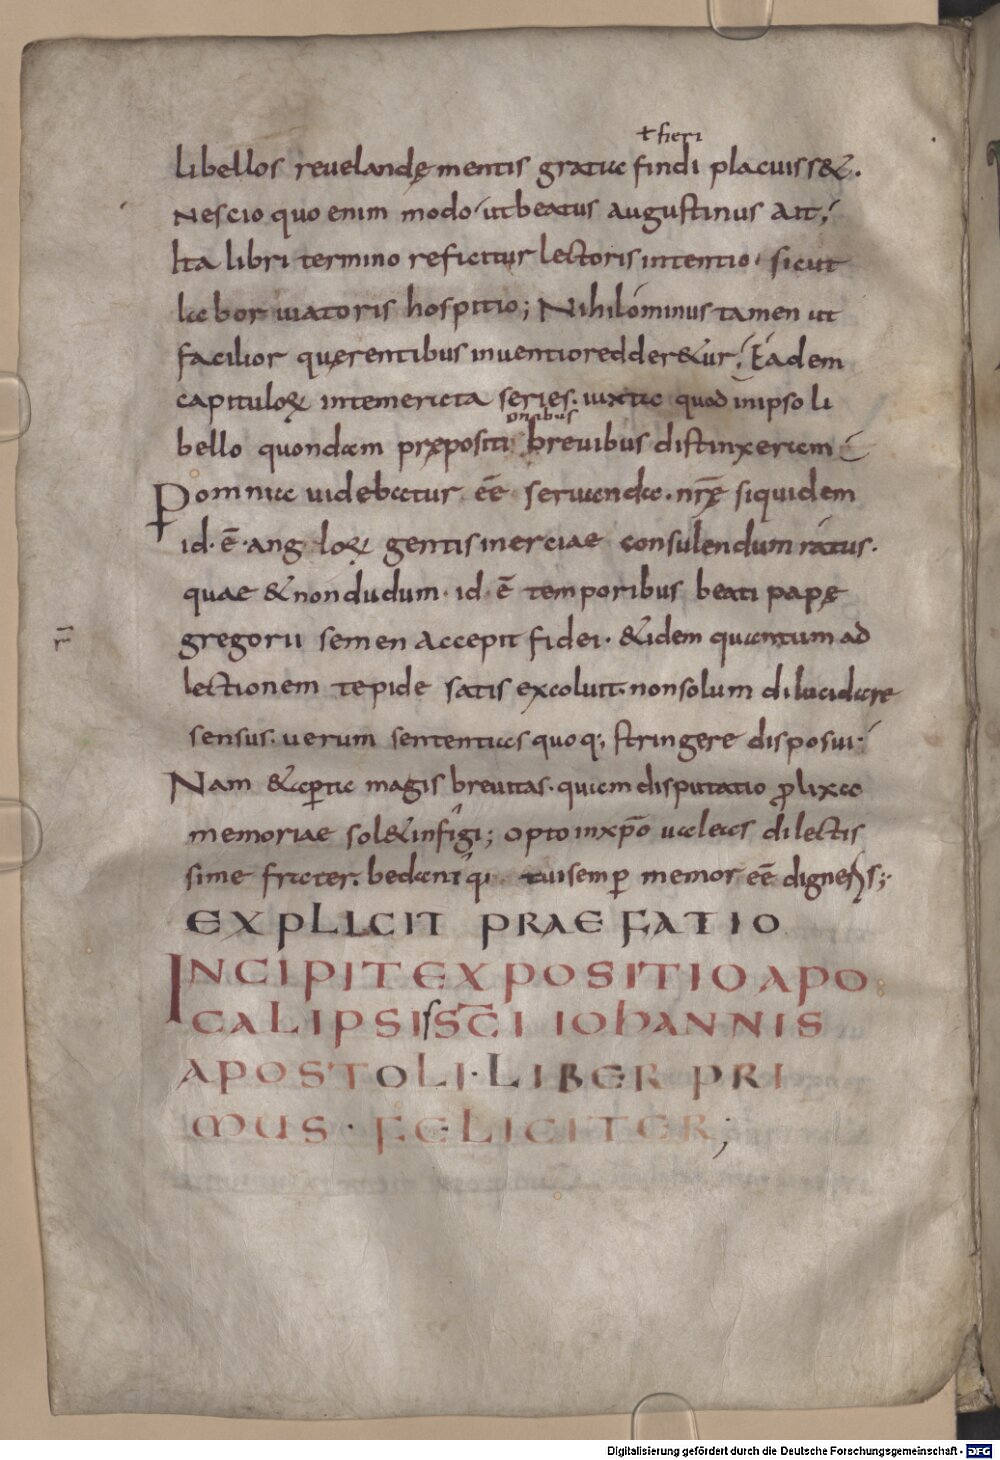 ł fieri
libellos reuelandę mentis gratia findi placuiss&.
Nescio quo enim modo ut beatus augustinus ait;
Ita libri termino reficitur lectoris intentio. sicut
labor uiatoris hospitio; Nihilominus tamen ut
facilior quęrentibus inuentio redder&ur; Eadem
capituloꝝ intemerata series. iuxta quod in ipso li
onibus
bello quondam prępositi breuibus distinxeram
Pomnia uidebatur eē seruanda. nrę̄ siquidem
id. ē. angloꝝ gentis inerciae consulendum ratus.
quae & non dudum. id. ē temporibus beati papę
gregorii semen accepit fidei. & idem quantum ad
r̄
lectionem tepide satis excoluit. non solum dilucidare
sensus. uerum sententias quoq; stringere disposui;
Nam & aꝑta magis breuitas. quam disputatio ꝓlixa
memoriae sol& infigi; opto in xp̄o ualeas dilectis
sime frater. bedam qi tui semꝑ memor eē digneris;
EXPLICIT PRAEFATIO
INCIPIT EXPOSITIO APO
CALIPSIS SC̄I IOhANNIS
APOSTOLI. LIBER PRI
MUS. FELICITER;
Digitalisierung gefördert durch die Deutsche Forschungsgemeinschaft - DFG